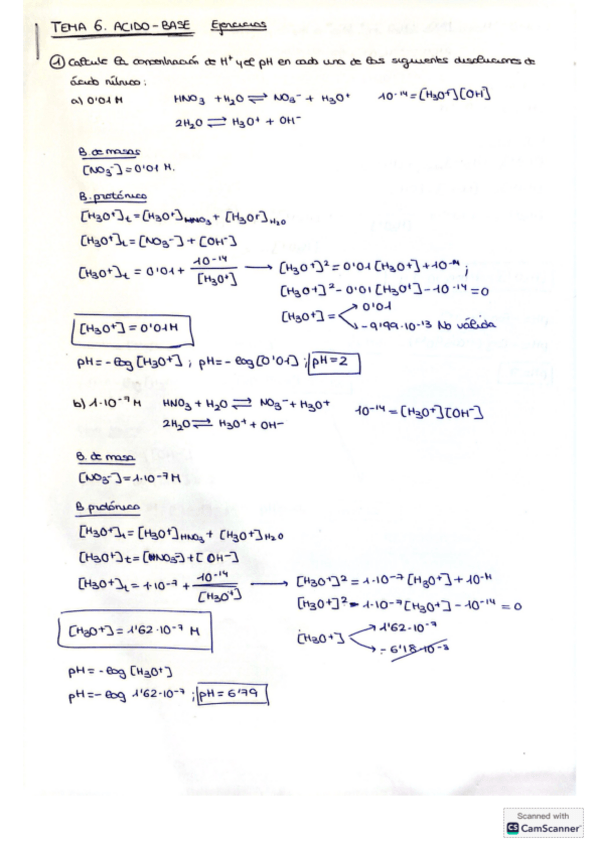 TEMA 6. ACIDO-BASE Ejercicios
① Calcule la concentración de H⁺ y el pH en cada una de las siguientes disoluciones de
ácido nítrico:
a) 0'01 M HNO₃ + H₂O ⇌ NO₃⁻ + H₃O⁺ 10⁻¹⁴ = [H₃O⁺][OH]
2H₂O ⇌ H₃O⁺ + OH⁻
B. de masas
[NO₃⁻] = 0'01 M.
B. protónico
[H₃O⁺]t = [H₃O⁺]HNO₃ + [H₃O⁺]H₂O
[H₃O⁺]t = [NO₃⁻] + [OH⁻]
[H₃O⁺]t = 0'01 + 10⁻¹⁴/[H₃O⁺] → [H₃O⁺]² = 0'01 [H₃O⁺] + 10⁻¹⁴ ;
[H₃O⁺]² - 0'01 [H₃O⁺] - 10⁻¹⁴ = 0
[H₃O⁺] = 0'01
[H₃O⁺] = 0'01 M
-9'99·10⁻¹³ No válida
pH = -log [H₃O⁺] ; pH = -log [0'01] ; pH = 2
b) 1·10⁻⁷ M HNO₃ + H₂O ⇌ NO₃⁻ + H₃O⁺ 10⁻¹⁴ = [H₃O⁺][OH⁻]
2H₂O ⇌ H₃O⁺ + OH⁻
B. de masa
[NO₃⁻] = 1·10⁻⁷ M
B protónico
[H₃O⁺]t = [H₃O⁺]HNO₃ + [H₃O⁺]H₂O
[H₃O⁺]t = [NO₃⁻] + [OH⁻]
[H₃O⁺]t = 1·10⁻⁷ + 10⁻¹⁴/[H₃O⁺] → [H₃O⁺]² = 1·10⁻⁷ [H₃O⁺] + 10⁻¹⁴
[H₃O⁺]² - 1·10⁻⁷ [H₃O⁺] - 10⁻¹⁴ = 0
[H₃O⁺] = 1'62·10⁻⁷ M
[H₃O⁺] 1'62·10⁻⁷
-6'18·10⁻⁸
pH = -log [H₃O⁺]
pH = -log 1'62·10⁻⁷ ; pH = 6'79
Scanned with
CS CamScanner